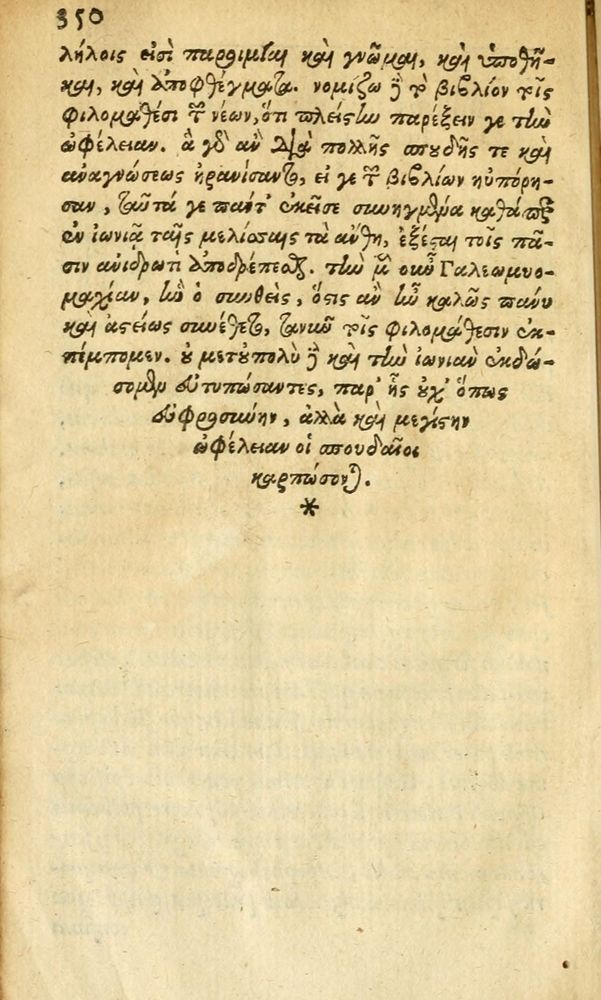 350
λήλοις εἰσὶ παροιμίαι καὶ γνῶμαι, καὶ ὑποθῆ-
και, καὶ ἀποφθέγματα. νομίζω δὲ τὸ βιβλίον τοῖς
φιλομαθέσι τῶν νέων, ὅτι πλείστην παρέξειν γε τὴν
ὠφέλειαν. ἃ γὰρ ἂν διὰ πολλῆς σπουδῆς τε καὶ
ἀναγνώσεως ἠρανίσαντο, εἴ γε τῶν βιβλίων ηὐπόρη-
σαν, ταῦτά γε πάντ' ἐκεῖσε συνηγμένα καθάπερ
ἐν ἰωνιᾷ ταῖς μελίσσαις τὰ ἄνθη, ἐξέσται τοῖς πᾶ-
σιν ἀνιδρωτὶ ἀποδρέπεσθαι. τὴν μὲν οὖν Γαλεωμυο-
μαχίαν, ἣν ὁ συνθεὶς, ὅστις ἂν ἦν καλῶς πάνυ
καὶ ἀστείως συνέθετο, τανῦν τοῖς φιλομάθεσιν ἐκ-
πέμπομεν. οὐ μετὐπολὺ δὲ καὶ τὴν ἰωνιὰν ἐκδώ-
σομεν ἐυτυπώσαντες, παρ' ἧς οὐχ' ὅπως
ἐυφροσύνην, ἀλλὰ καὶ μεγίστην
ὠφέλειαν οἱ σπουδαῖοι
καρπώσονται.
*